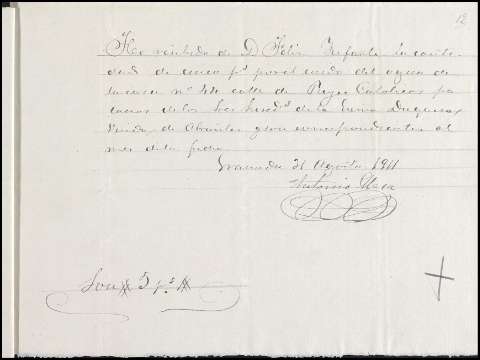 12
He recibido de D. Felix Infante la canti-
dad de cinco pts por el cuido del agua de
la casa nº 44 calle de Reyes Catolicos pa
de los Sres de la Sma Duquesa
Viuda de Abrantes y son correspondientes al
mes de la fecha.
Granada 31 Agosto 1911
Antonio
Son 5 pts